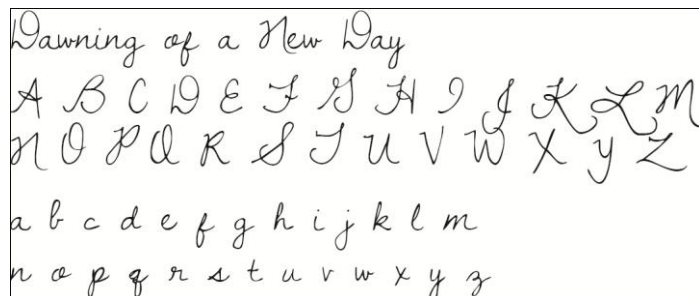 Dawning of a New Day
A B C D E F G H I J K L M
N O P Q R S T U V W X Y Z
a b c d e f g h i j k l m
n o p q r s t u v w x y z